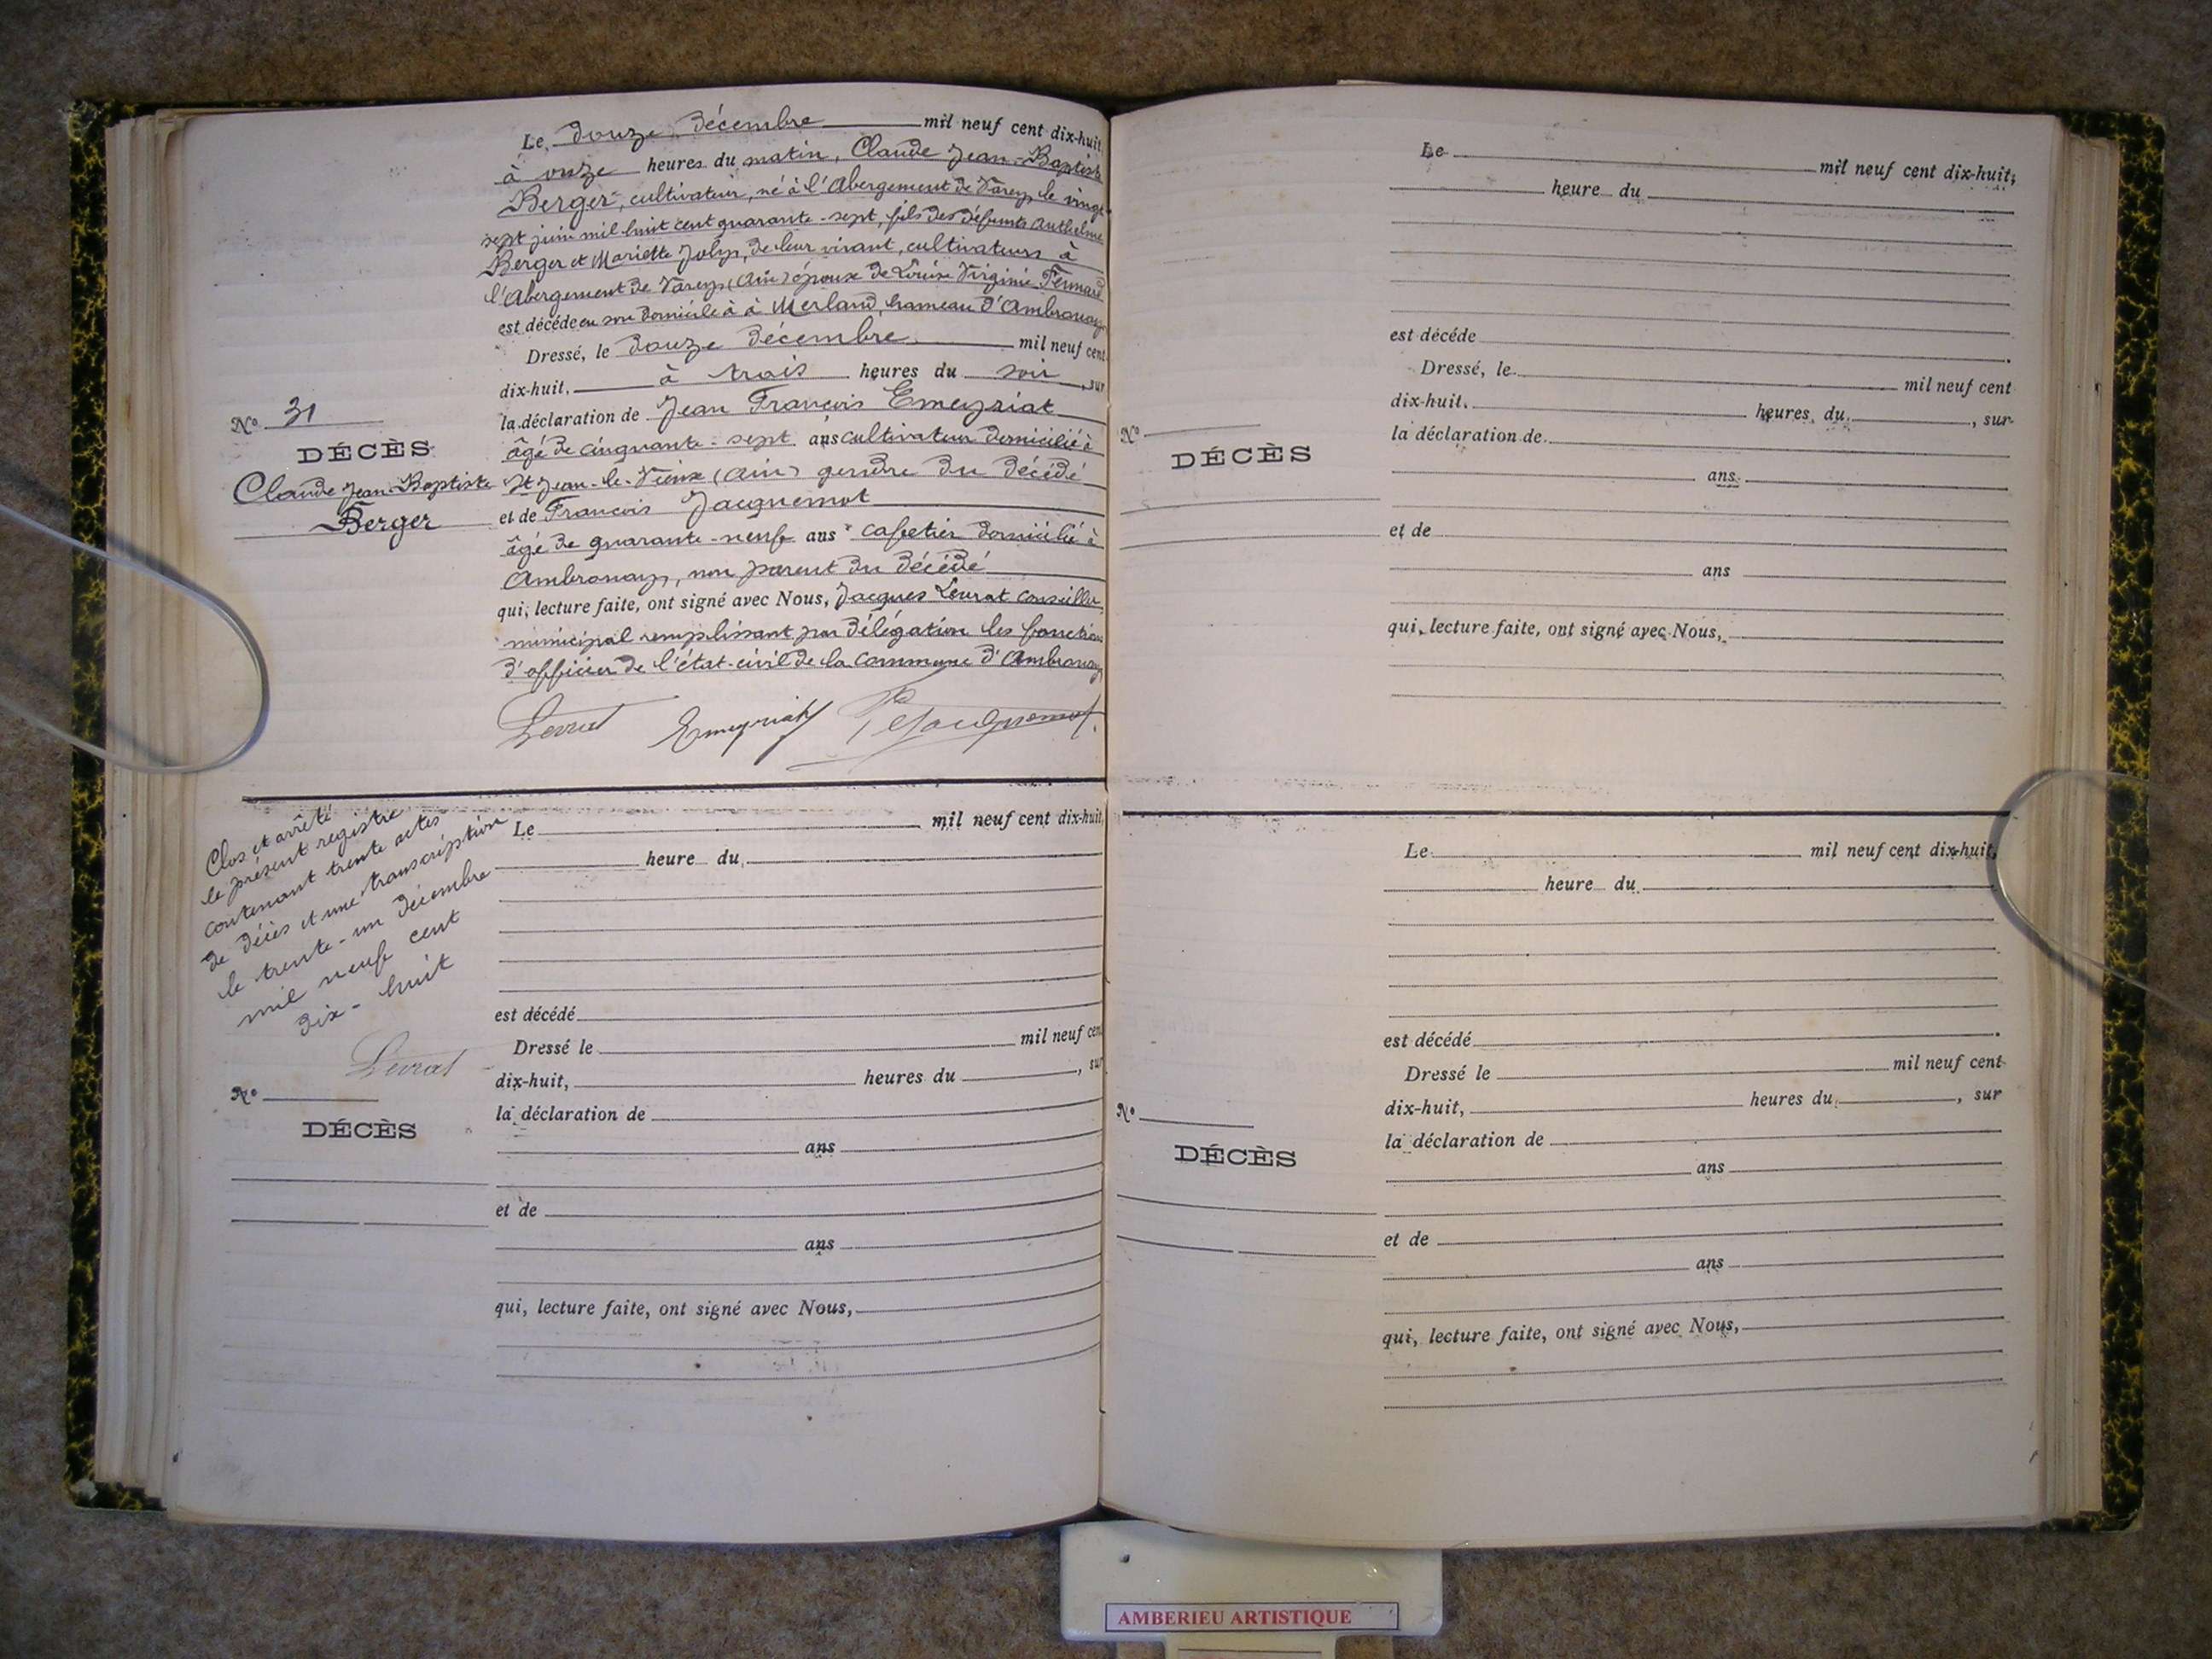 Le douze décembre mil neuf cent dix-huit,
à onze heures du matin, Claude Jean-Baptiste
Berger, cultivateur, né à l'Abergement de Varey, le vingt
sept juin mil huit cent quarante-sept, fils des défunts Anthelme
Berger et Mariette Joly, de leur vivant, cultivateurs à
l'Abergement de Varey (Ain) époux de Louise Virginie
est décédé en son domicile à à Merland, hameau d'Ambronay
Dressé, le douze décembre mil neuf cent
dix-huit, à trois heures du soir, sur
la déclaration de Jean François Emeyriat
âgé de cinquante-sept ans cultivateur domicilié à
St Jean-le-Vieux (Ain) gendre du décédé
et de François Jacquemot
âgé de quarante-neuf ans cafetier domicilié à
Ambronay, non parent du décédé
qui, lecture faite, ont signé avec Nous, Jacques Levrat conseiller
municipal remplissant par délégation les fonctions
d'officier de l'état-civil de la commune d'Ambronay
Levrat Emeyriat Jacquemot
No 31
DÉCÈS
Claude Jean-Baptiste
Berger
Clos et arrêté
le présent registre
contenant trente actes
de décès et une transcription
le trente-un décembre
mil neuf cent
dix-huit
Levrat
No
DÉCÈS
Le mil neuf cent dix-huit,
heure du
est décédé
Dressé le mil neuf cent
dix-huit, heures du , sur
la déclaration de
ans
et de
ans
qui, lecture faite, ont signé avec Nous,
Le mil neuf cent dix-huit,
heure du
est décédé
Dressé, le mil neuf cent
dix-huit, heures du , sur
la déclaration de
ans
et de
ans
qui, lecture faite, ont signé avec Nous,
No
DÉCÈS
Le mil neuf cent dix-huit,
heure du
est décédé
Dressé le mil neuf cent
dix-huit, heures du , sur
la déclaration de
ans
et de
ans
qui, lecture faite, ont signé avec Nous,
No
DÉCÈS
AMBERIEU ARTISTIQUE